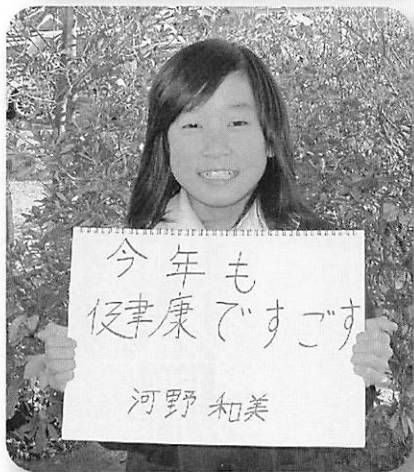 今年も
健康ですごす
河野 和美